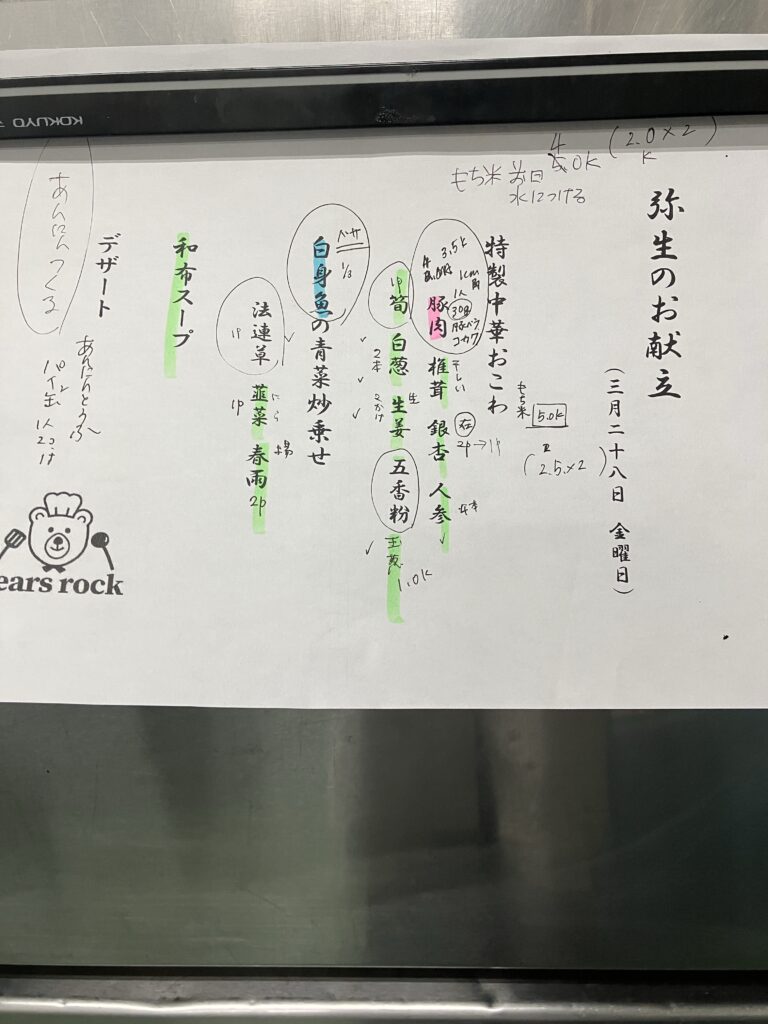 弥生のお献立
(三月二十八日 金曜日)
4
5.0k
(2.0×2)
k
もち米 前日
水につける
特製中華おこわ
もち米 5.0K
(2.5×2)
3.5k
1cm
角
1人
30g
豚バラ
豚肉 椎茸 銀杏 人参
干しい
在
2P→1P
4本
1P
筍 白葱 生姜 五香粉 玉葱
2本
生
2かけ
1.0K
白身魚の青菜炒乗せ
バサ
1/3
法連草 韮菜 春雨
1P
1P
にら
2P
和布スープ
デザート
あんにんとうふ
パイン缶
1人
2コ
あんにんつくる
KOKUYO
ears rock